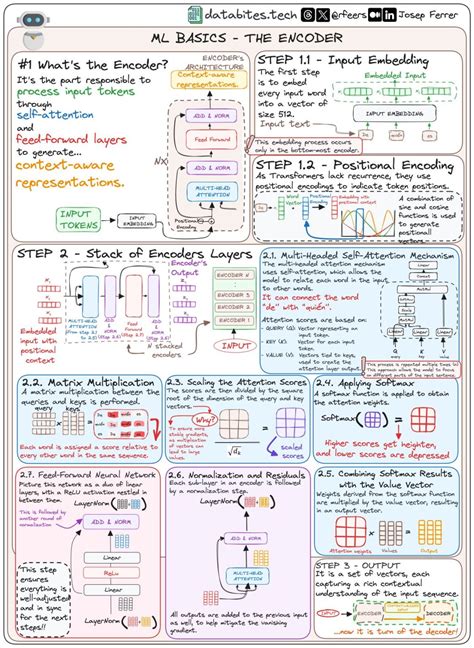 databites.tech @rfeers Josep Ferrer
ML BASICS - THE ENCODER
#1 What's the Encoder?
It's the part responsible to
process input tokens
through
self-attention
and
feed-forward layers
to generate...
context-aware
representations.
INPUT
TOKENS
INPUT
EMBEDDING
ENCODER'S
ARCHITECTURE
Context-aware
representations.
ADD & NORM
Feed Forward
ADD & NORM
MULTI-HEAD
ATTENTION
Nx
Positional
Encoding
STEP 1.1 - Input Embedding
The first step
is to embed
every input word
into a vector of
size 512.
Input text
Embedded Input
INPUT EMBEDDING
This embedding process occurs
only in the bottom-most encoder.
STEP 1.2 - Positional Encoding
As Transformers lack recurrence, they use
positional encodings to indicate token positions.
Word
Vector
Positional
Encoding
Embedding with
positional
context
A combination of
sine and cosine
functions is used
to generate
positional
vectors.
STEP 2 - Stack of Encoders Layers
Embedded
input with
positional
context
MULTI-HEAD
ATTENTION
ADD
&
NORM
Feed
Forward
ADD
&
NORM
N stacked
encoders
Encoder's
Output
ENCODER N
ENCODER 3
ENCODER 2
ENCODER 1
INPUT
2.1. Multi-Headed Self-Attention Mechanism
The multi-headed attention mechanism
uses self-attention, which allows the
model to relate each word in the input
to other words.
It can connect the word
"de" with "quién".
Attention scores are based on:
QUERY (Q) Vector representing
an input token.
KEY (K) Vector for each input
token.
VALUE (V) Vectors tied to keys,
used to create the
attention layer output.
Concat
MatMul
Linear
Linear
Linear
Q
K
V
This process is repeated multiple times (h)
This approach allow the model to focus
in different parts of the input sentence.
2.2. Matrix Multiplication
A matrix multiplication between the
queries and keys is performed.
query
keys
Each word is assigned a score relative to
every other word in the same sequence.
2.3. Scaling the Attention Scores
The scores are then divided by the square
root of the dimension of the query and key
vectors.
Why?
To ensure more
stable gradients,
as multiplication
of vectors can
lead to large
values.
√dk
scaled
scores
2.4. Applying Softmax
A softmax function is applied to obtain
the attention weights.
SoftMax
Higher scores get heighten,
and lower scores are depressed
2.7. Feed-Forward Neural Network
Picture this network as a duo of linear
layers, with a ReLU activation nestled in
between them.
This is followed by
another round of
normalization
LayerNorm
ADD & NORM
Linear
ReLu
Linear
LayerNorm
This step
ensures
everything is
well-adjusted
and in sync
for the next
steps!
2.6. Normalization and Residuals
Each sub-layer in an encoder is followed
by a normalization step.
LayerNorm
ADD & NORM
MULTI-HEAD
ATTENTION
All outputs are added to the previous input
values, to help mitigate the vanishing
gradient.
2.5. Combining Softmax Results
with the Value Vector
Weights derived from the softmax function
are multiplied by the value vector, resulting
in an output vector.
Attention
weights
Values
Output
STEP 3 - OUTPUT
It is a set of vectors, each
capturing a rich contextual
understanding of the input sequence.
INPUT
ENCODER
DECODER
...now it is turn of the decoder!